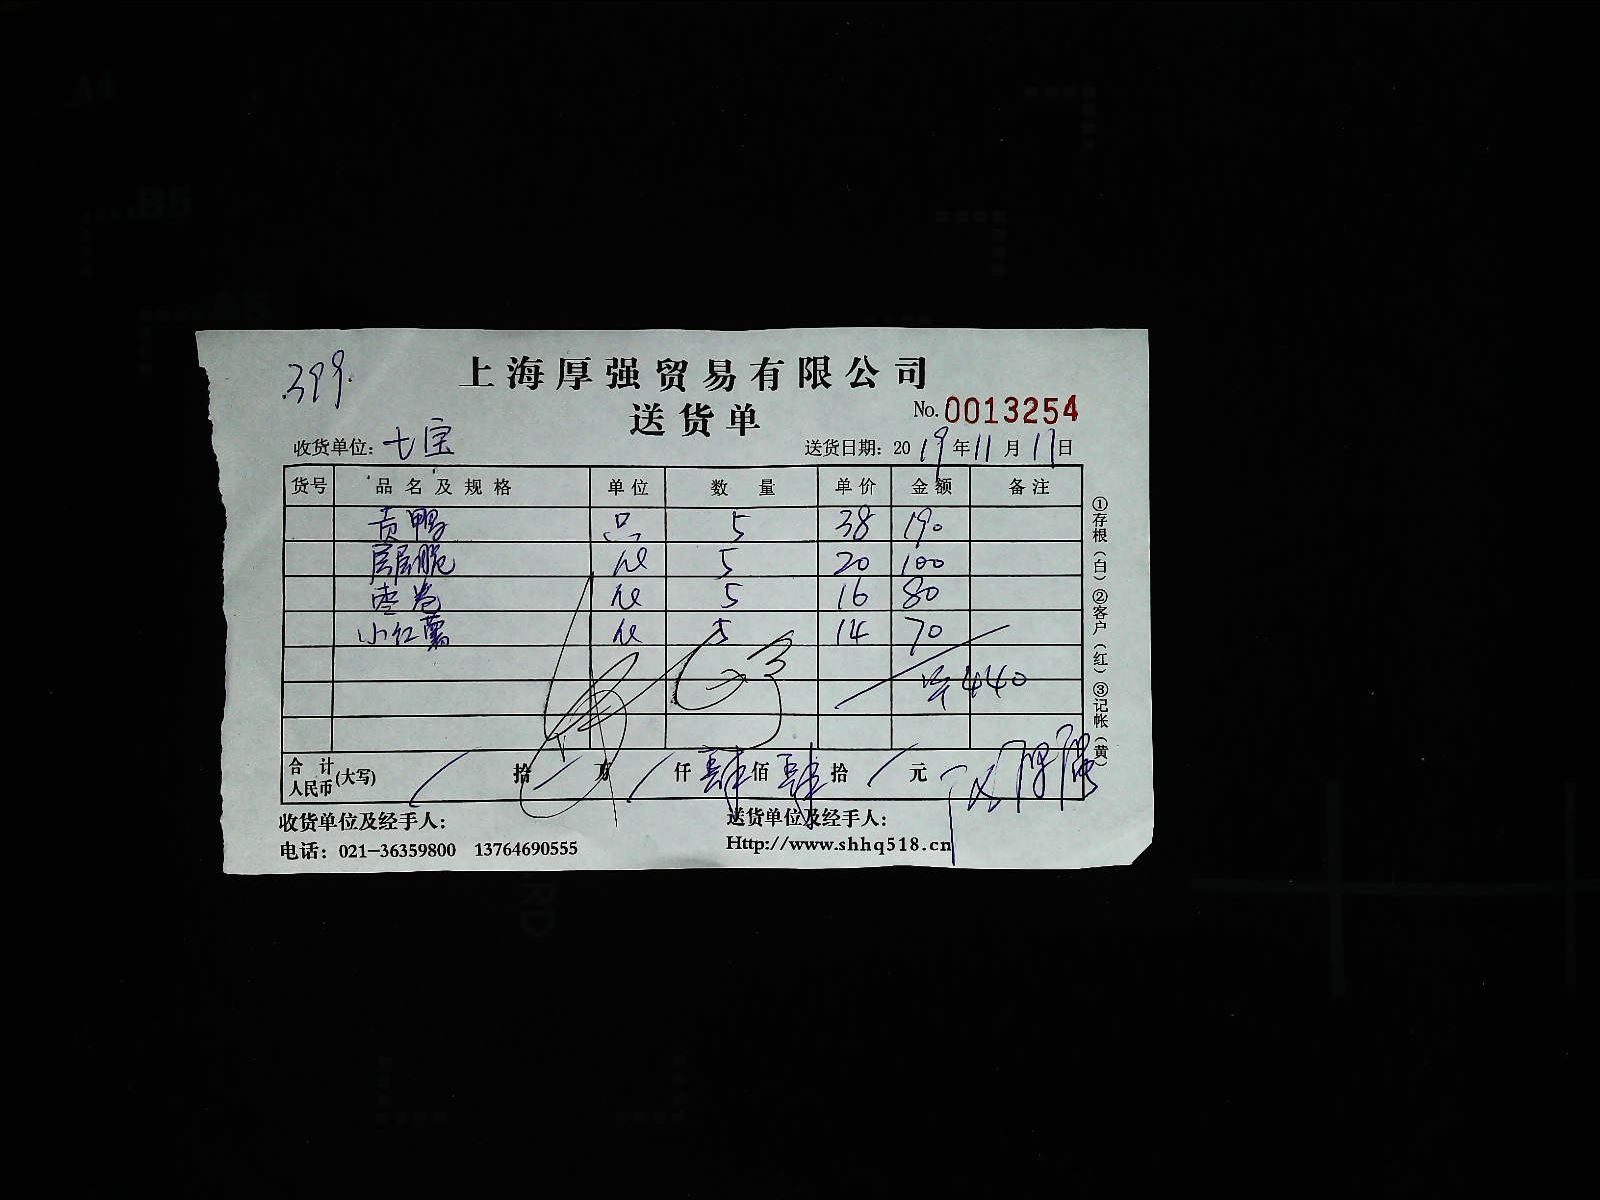 399.
上海厚强贸易有限公司
送货单
No. 0013254
收货单位: 七宝
送货日期: 2019年11月17日
货号 品名及规格 单位 数量 单价 金额 备注
贡鸭 只 5 38 190
层层脆 5 20 100
枣卷 5 16 80
小红薯 5 14 70
440
合计人民币(大写) 拾 万 仟 肆 佰 肆 拾 元
收货单位及经手人:
送货单位及经手人:
电话: 021-36359800 13764690555
Http://www.shhq518.cn
①存根(白)②客户(红)③记帐(黄)